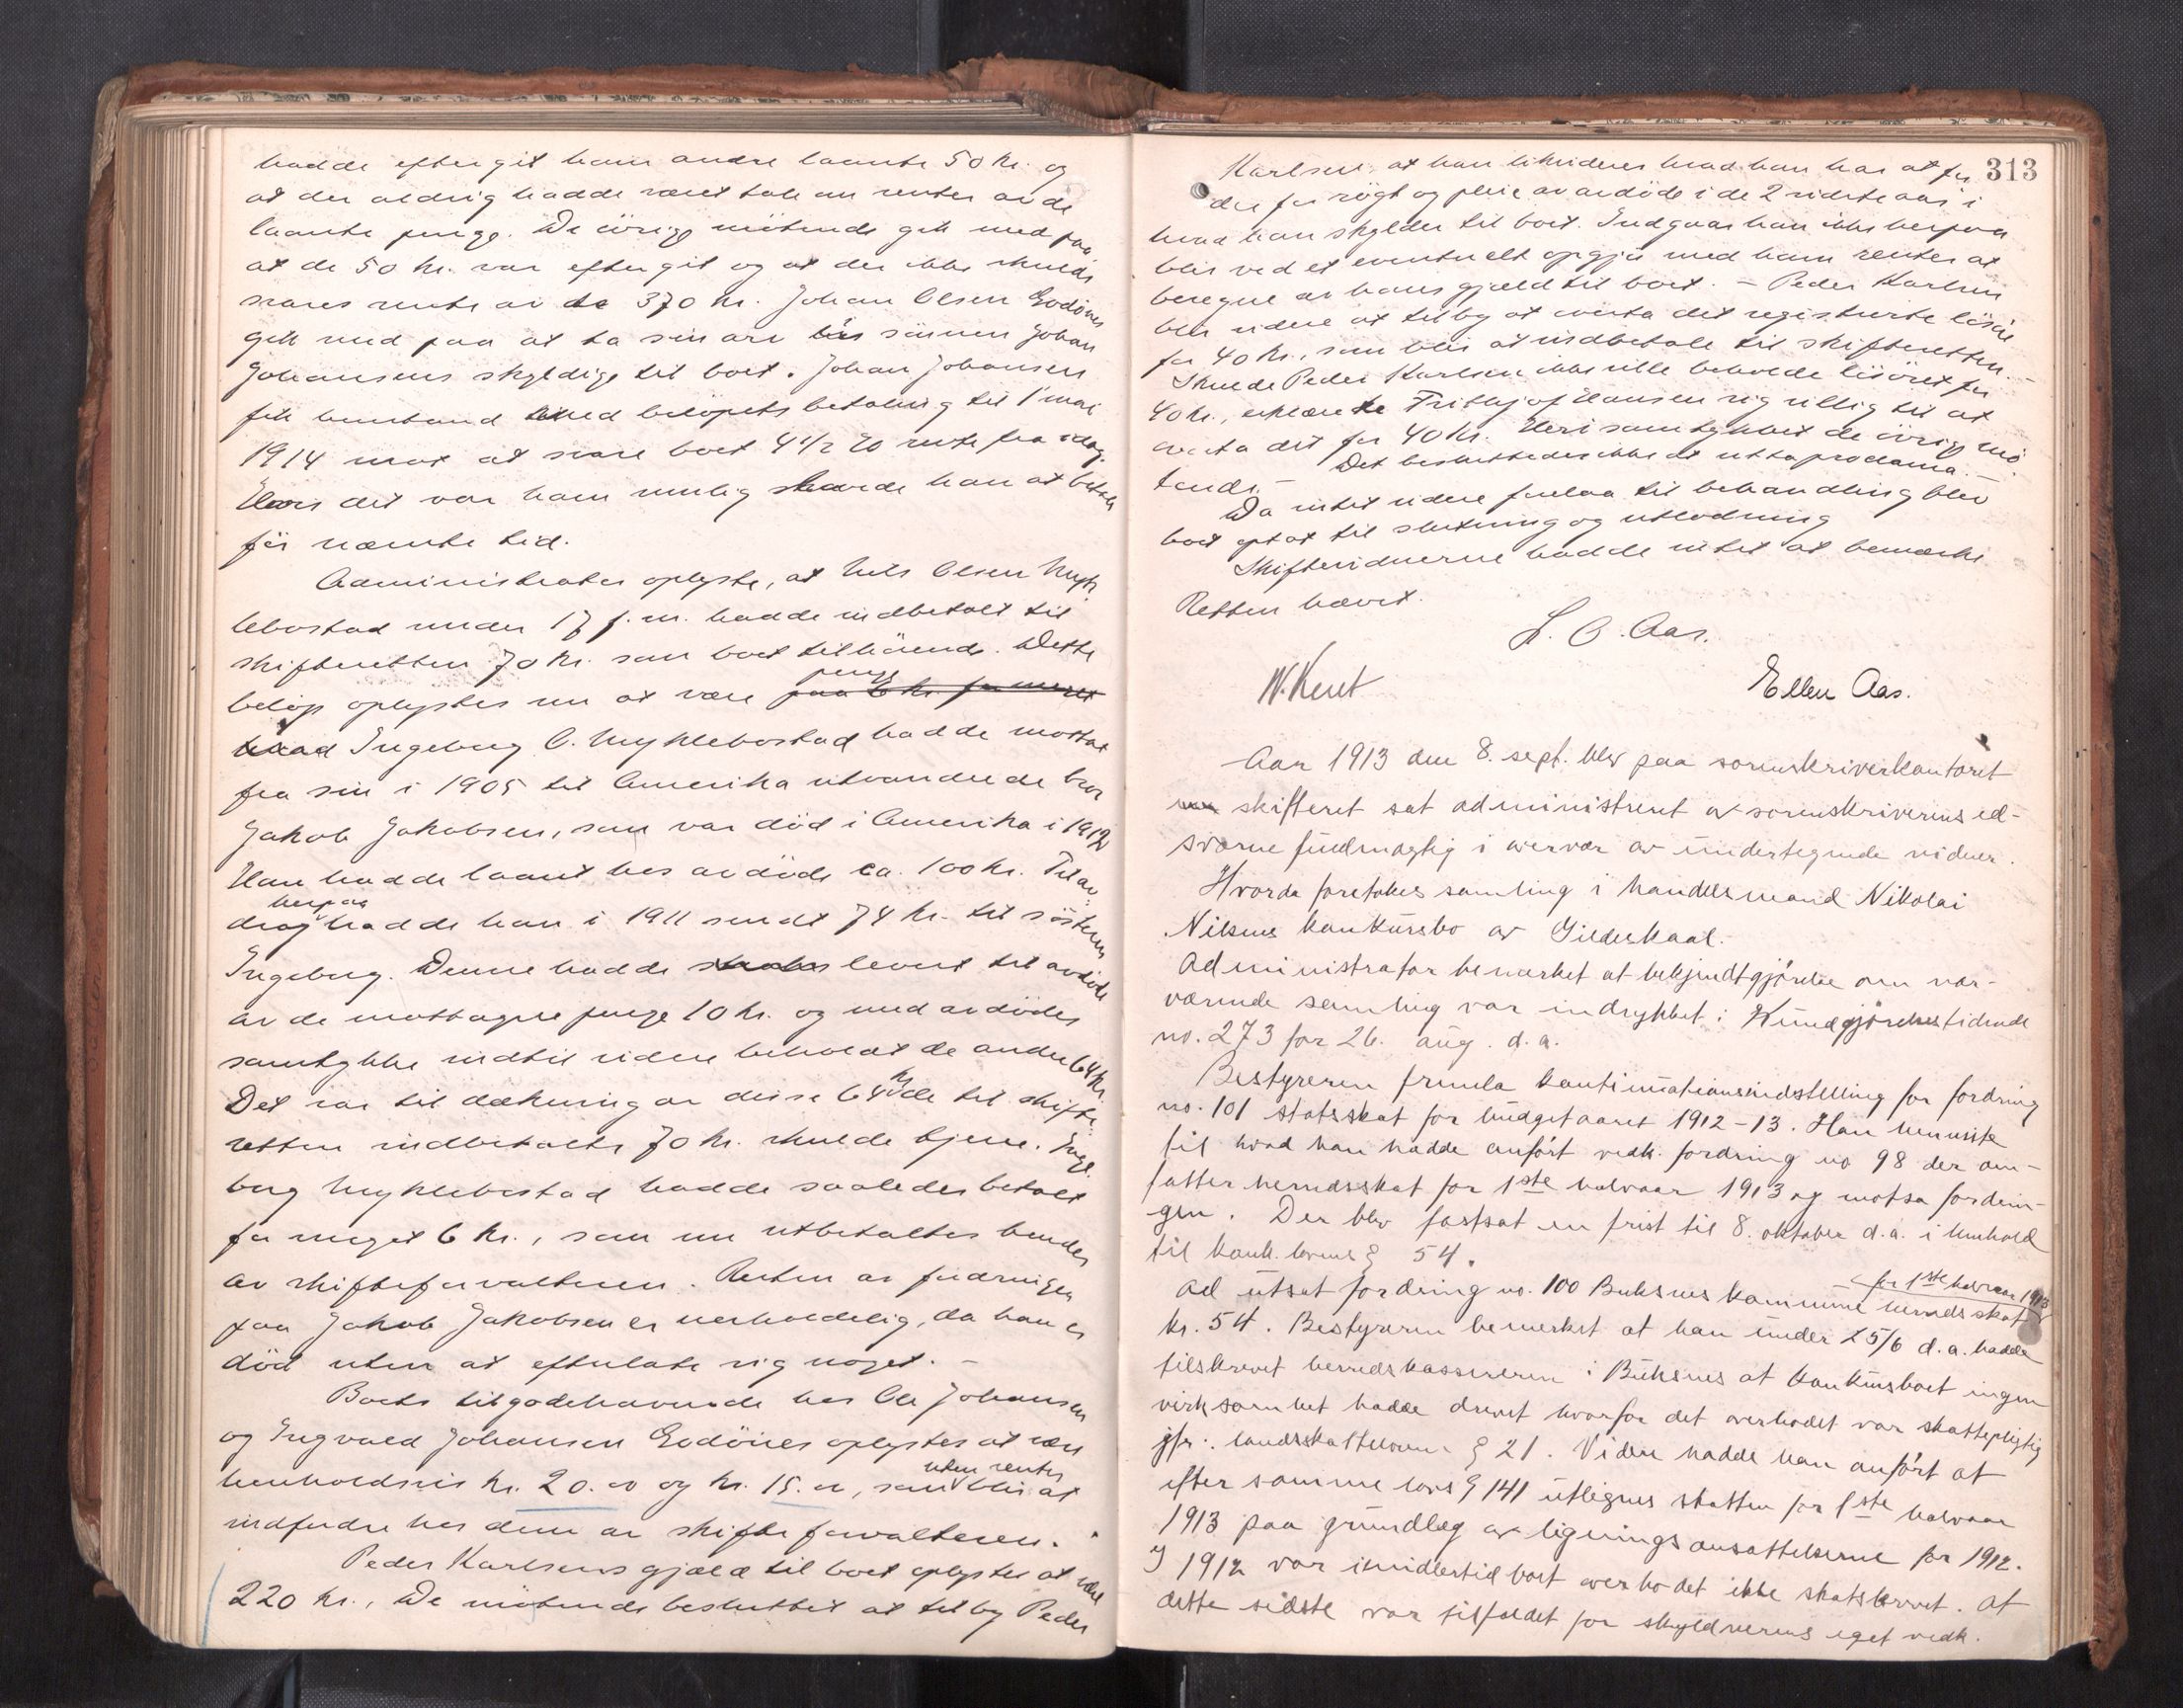 hadde eftergit ham andre laante 50 kr. og
at der aldrig hadde været tale om renter av de
laante penge. De øvrige møtende gik med paa
at de 50 kr. var eftergit og at der ikke skulde
svares rente av de 370 kr. Johan Olsen Godönes
gik med paa at ta sin arv i sönnen Johan
Johansens skyldige til boet. Johan Johansen
fik henstand med beløpets betaling til 1 mai
1914 mot at svare boet 4 1/2 % rente fra idag.
Hvis det var ham mulig skulde han at betale
før nævnte tid.
Administrator oplyste, at Nils Olsen Myk
lebostad under 17 f. m. hadde indbetalt til
skifteretten 70 kr. som boet tilhörende. Dette
penge
beløp oplystes nu at være paa 6 kr. for meget
hvad Ingeborg O. Myklebostad hadde mottat
fra sin i 1905 til Amerika utvandrede bror
Jakob Jakobsen, som var död i Amerika i 1912
Han hadde laant hos avdøde ca. 100 kr. Til av-
herpaa
drag hadde han i 1911 sendt 74 kr. til søsteren
Ingeborg. Denne hadde levert til avdøde
av de mottagne penge 10 kr. og med avdødes
samtykke indtil videre beholdt de andre 64 kr.
Det var til dækning av disse 64 kr. de til skifte-
retten indbetalte 70 kr. skulde tjene. Inge
borg Myklebostad hadde saaledes betalt
for meget 6 kr., som nu utbetaltes hende
av skifteforvalteren. Resten av fordringen
paa Jakob Jakobsen er uerholdelig, da han er
död uten at efterlate sig noget. -
Boets tilgodehavende hos Ole Johansen
og Ingvald Johansen Godönes oplystes at være
uten renter
henholdsvis kr. 20.00 og kr. 15.00, som blir at
indfordre hos dem av skifteforvalteren.
Peder Karlsens gjæld til boet oplystes at være
220 kr., De møtende besluttet at tilby Peder
313
Karlsen at han likviderer hvad han har at for
dre for røgt og pleie av avdøde i de 2 sidste aar i
hvad han skylder til boet. Indgaar han ikke herpaa
blir ved et eventuelt opgjør med ham renter at
beregne av hans gjæld til boet. - Peder Karlsen
blir videre at tilby at overta det registrerte løsøre
for 40 kr., som blir at indbetale til skifteretten. -
Skulde Peder Karlsen ikke ville beholde løsøret for
40 kr., erklærte Frithjof Hansen sig villig til at
overta det for 40 kr. Heri samtykket de øvrige mø
tende. - Det besluttedes ikke at utta proclama. -
Da intet videre forelaa til behandling blev
boet optat til slutning og utlodning
Skiftevidnerne hadde intet at bemærke
Retten hævet.
L. O. Aas.
N. Kent
Ellen Aas.
Aar 1913 den 8. sept. blev paa sorenskriverkontoret
skifteret sat administreret av sorenskriverens ed-
svorne fuldmægtig i overvær av undertegnede vidner.
Hvorda foretokes samling i handelsmand Nikolai
Nilsens konkursbo av Gildeskaal.
Administrator bemerket at bekjendtgjörelse om nær-
værende samling var indrykket i Kundgjörelsestidende
no. 273 for 26. aug. d. a.
Bestyreren fremla kontinuationsindstilling for fordring
no. 101 statsskat for budgetaaret 1912-13. Han henviste
til hvad han hadde anført vedk. fordring no 98 der om-
fatter herredsskat for 1ste halvaar 1913 og motsa fordrin-
gen. Der blev fastsat en frist til 8. oktober d. a. i henhold
til konk. lovens § 54.
for 1ste halvaar 1913
Ad utsat fordring no. 100 Buksnes kommune herredsskat
kr. 54. Bestyreren bemerket at han under 25/6 d. a. hadde
tilskrevet herredskassereren i Buksnes at konkursboet ingen
virksomhet hadde drevet hvorfor det overhodet var skattepligtig
jfr. landsskatteloven § 21. Videre hadde han anført at
efter samme lovs § 141 utlignes skatten for 1ste halvaar
1913 paa grundlag av ligningsansættelserne for 1912.
I 1912 var imidlertid boet overhodet ikke skatskrevet. At
dette sidste var tilfældet for skyldnerens eget vedk.